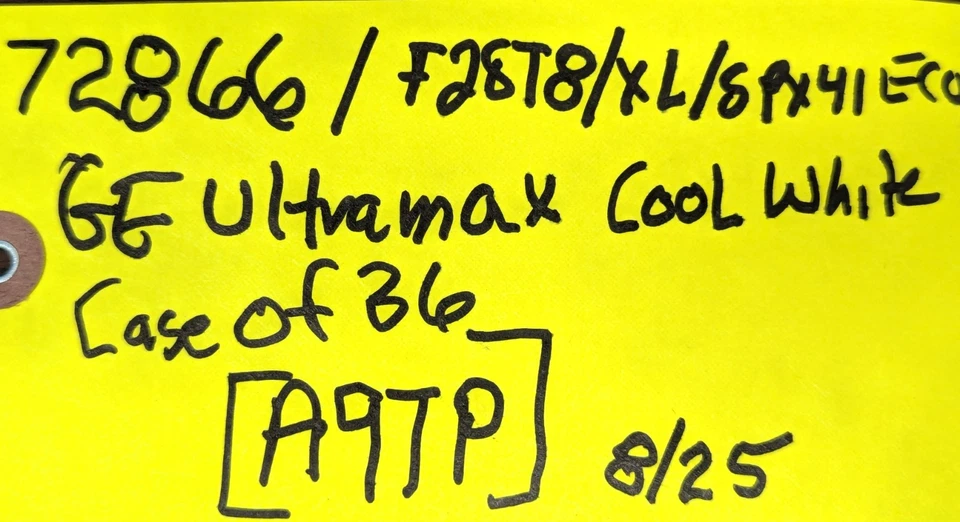 72866 / F28T8/XL/SPX41 ECO
GE Ultramax Cool White
Case of 36
[A9TP]
8/25